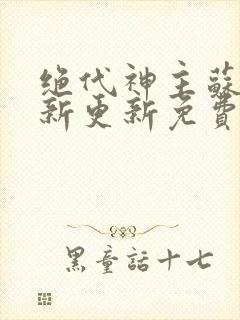 绝代神主蘇
新更新免費
黑童話十七